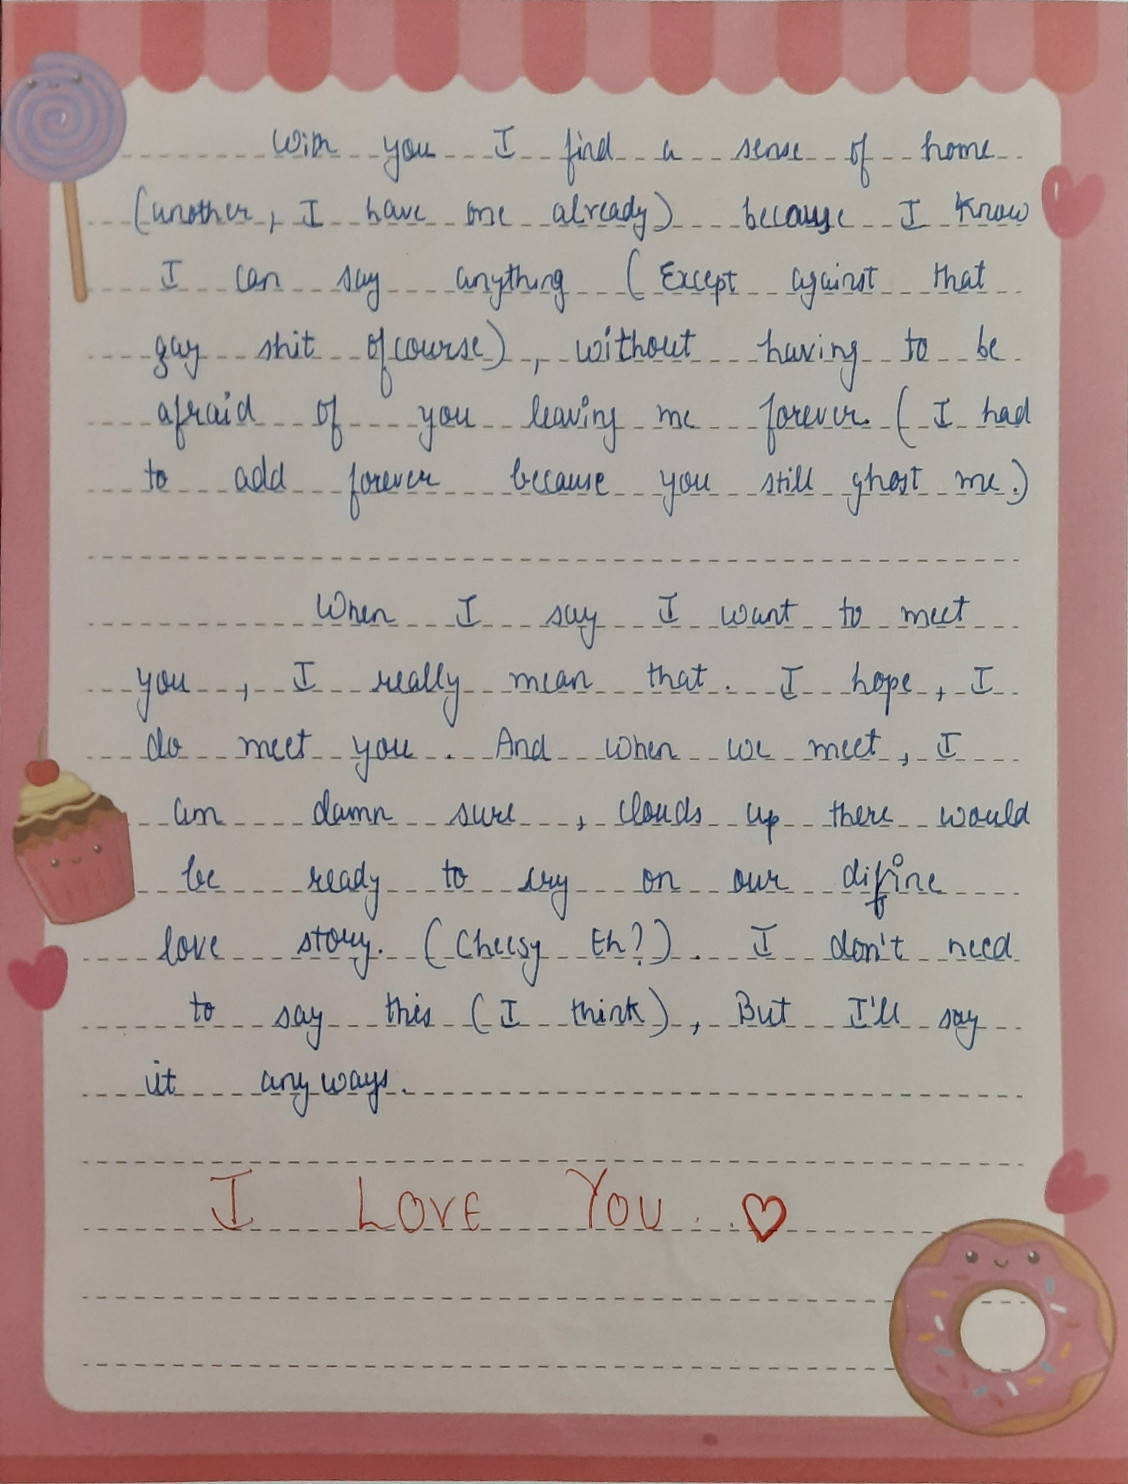 With you I find a sense of home
(another, I have one already) because I know
I can say anything (Except against that
gay shit ofcourse), without having to be
afraid of you leaving me forever. (I had
to add forever because you still ghost me.)
When I say I want to meet
you, I really mean that. I hope, I
do meet you. And when we meet, I
am damn sure, clouds up there would
be ready to cry on our difine
love story. (Cheesy Eh?). I don't need
to say this (I think), But I'll say
it anyways.
I LOVE YOU ♡